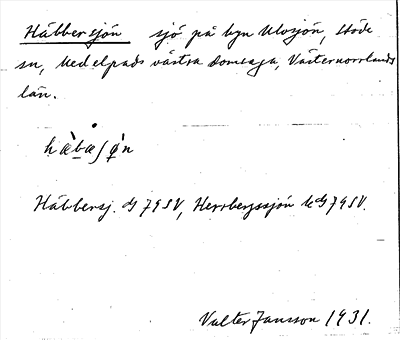 Häbbersjön sjö på byn Ulvsjön, Stöde
sn, Medelpads västra domsaga, Västernorrlands
län.
hæ̀bæʃø̀n
Häbbersj. dg 79 SV, Herrbergssjön kdg 79 SV.
Valter Jansson 1931.